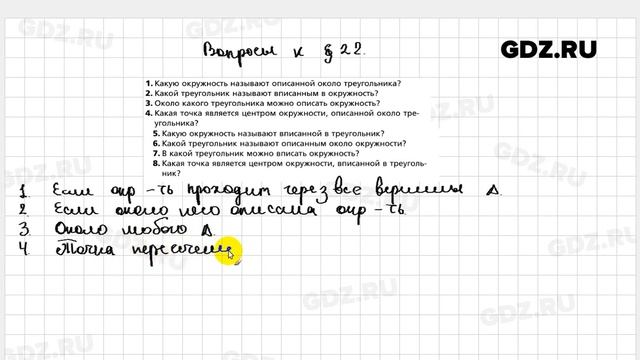 Вопросы к § 22.
GDZ.RU
1. Какую окружность называют описанной около треугольника?
2. Какой треугольник называют вписанным в окружность?
3. Около какого треугольника можно описать окружность?
4. Какая точка является центром окружности, описанной около тре-
угольника?
5. Какую окружность называют вписанной в треугольник?
6. Какой треугольник называют описанным около окружности?
7. В какой треугольник можно вписать окружность?
8. Какая точка является центром окружности, вписанной в треуголь-
ник?
1. Если окр-ть проходит через все вершины Δ.
2. Если около него описана окр-ть.
3. Около любого Δ.
4. Точка пересечени